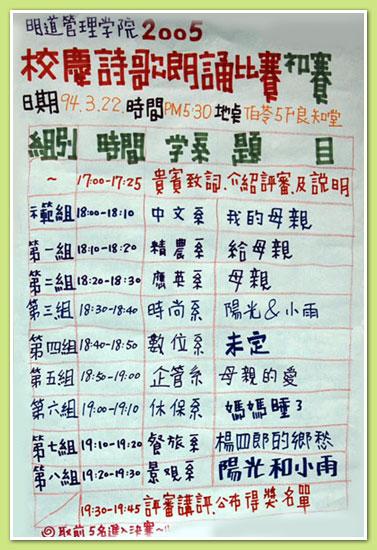 明道管理学院2005
校慶詩歌朗誦比賽初賽
日期94.3.22.時間PM5:30 地点伯苓5F良知堂
組別 時間 学系 題目
~ 17:00-17:25 貴賓致詞、介紹評審及說明
示範組 18:00-18:10 中文系 我的母親
第一組 18:10-18:20 精農系 給母親
第二組 18:20-18:30 應英系 母親
第三組 18:30-18:40 時尚系 陽光&小雨
第四組 18:40-18:50 數位系 未定
第五組 18:50-19:00 企管系 母親的愛
第六組 19:00-19:10 休保系 媽媽睡了
第七組 19:10-19:20 餐旅系 楊四郎的鄉愁
第八組 19:20-19:30 景觀系 陽光和小雨
19:30-19:45 評審講評、公布得獎名單
◎取前5名進入決賽~!!